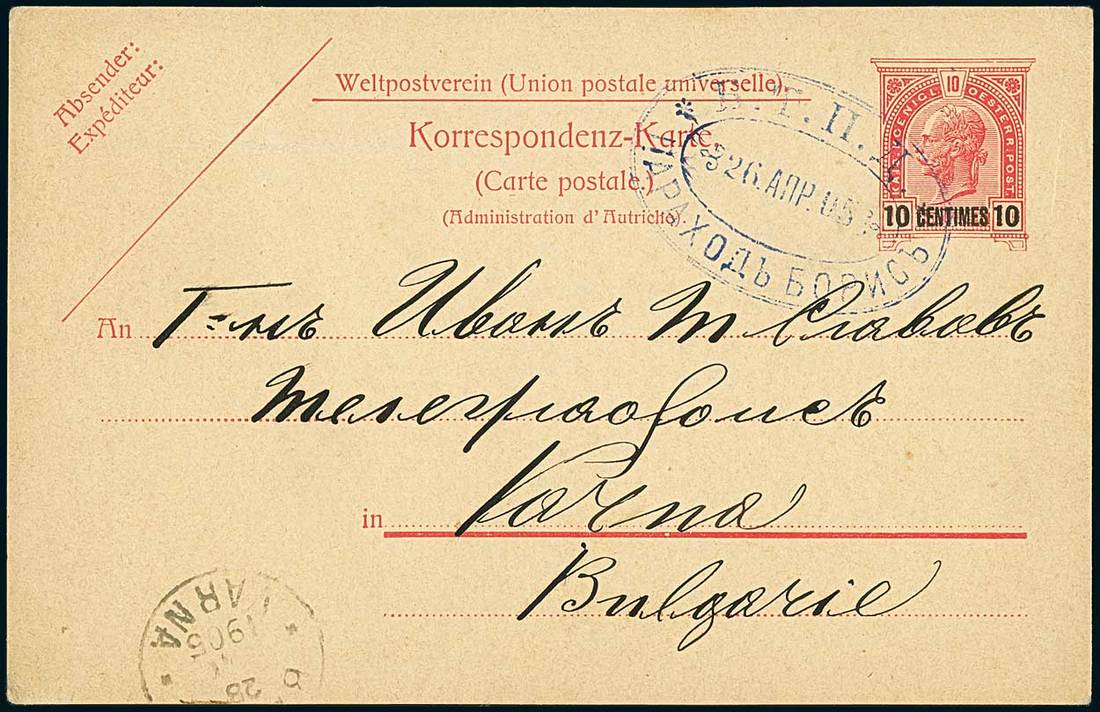 Absender:
Expéditeur:
Weltpostverein (Union postale universelle).
Korrespondenz-Karte.
(Carte postale.)
(Administration d'Autriche).
10
KAIS. KOENIGL. OESTERR. POST.
10 CENTIMES 10
Б. Т. П. Д.
26.АПР.05
ПАРАХОДЪ БОРИСЪ
An Г-нъ Иванъ Т Славовъ
Телеграфопис
in Varna
Bulgarie
VARNA
1905
28